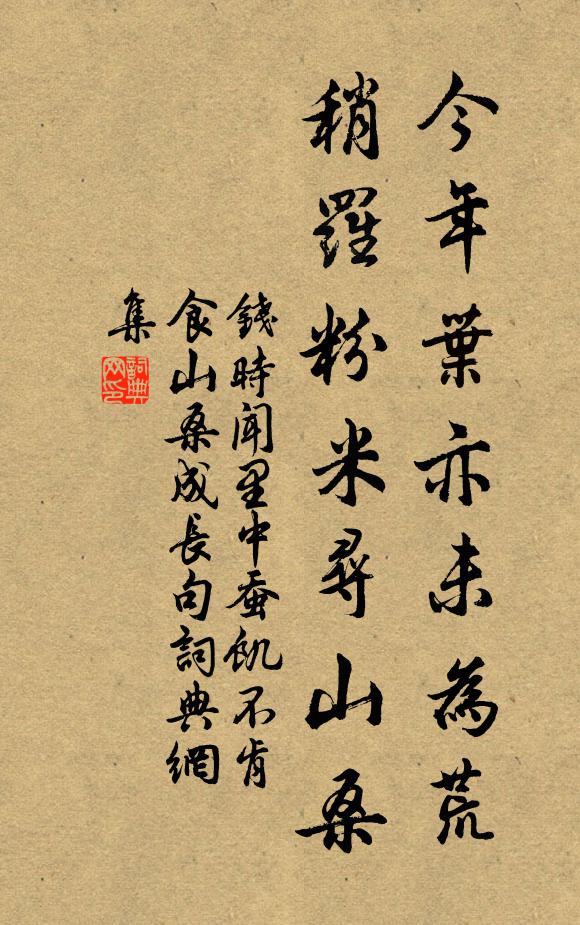 今年葉亦未為荒
稍羅粉米尋山桑
錢時闻里中蚕飢不肯
食山桑成長句詞典網
集
詞典
网印